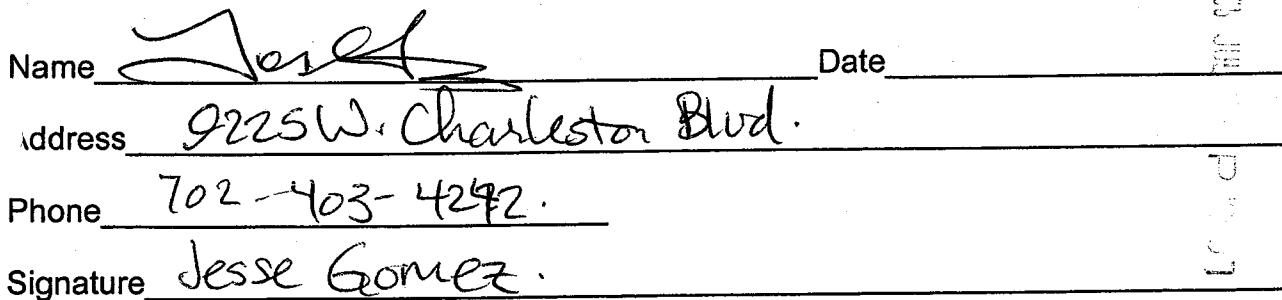 Name Date
Address 9225 W. Charleston Blvd.
Phone 702-403-4242.
Signature Jesse Gomez.